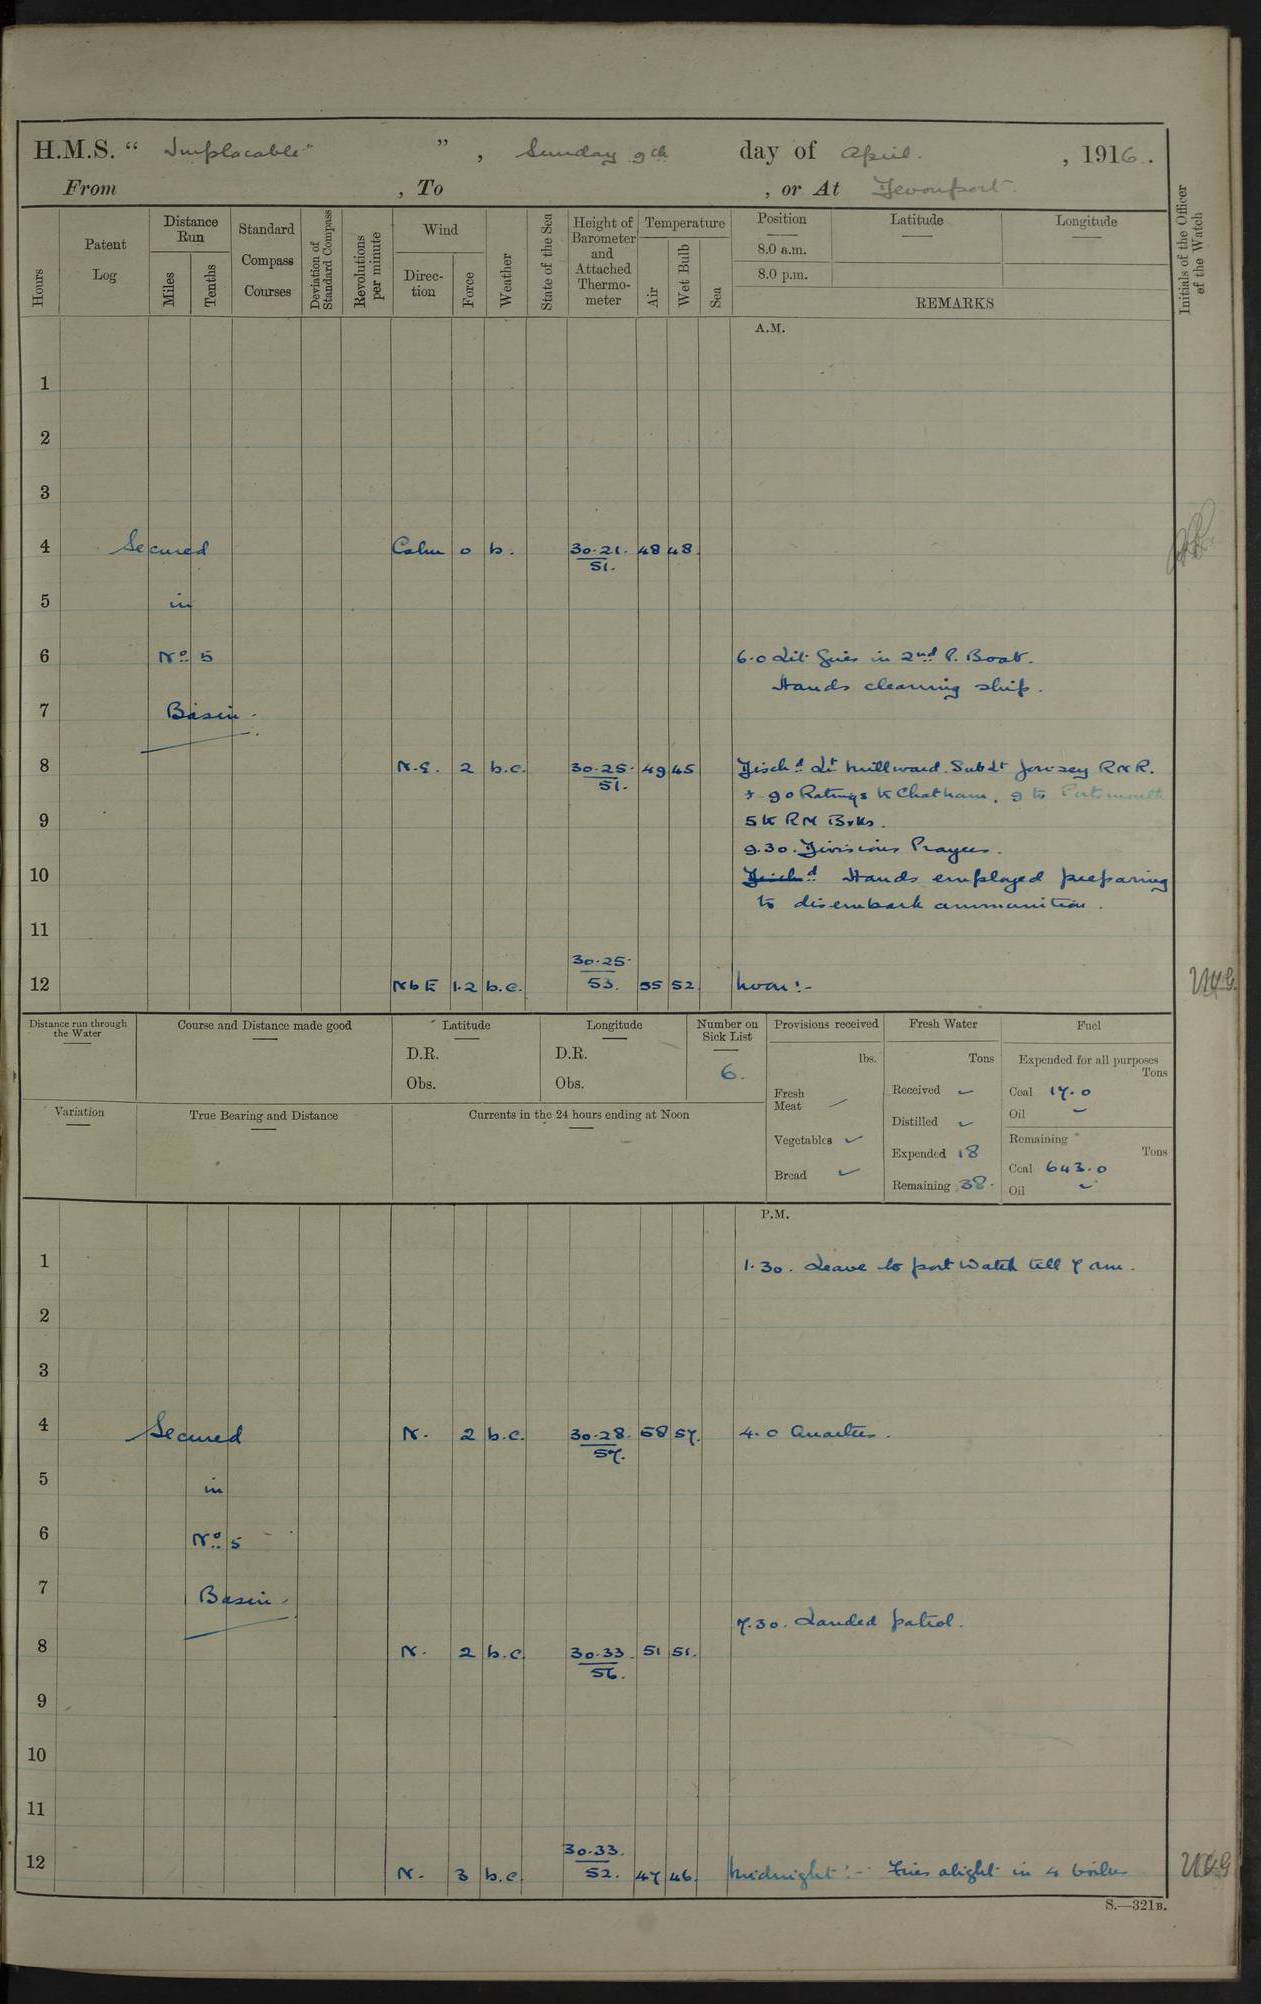 H.M.S. “ Implacable ” , Sunday 9th day of April , 1916.
From , To , or At Devonport.
Hours
Patent Log
Distance Run
Miles
Tenths
Standard Compass Courses
Deviation of Standard Compass
Revolutions per minute
Wind
Direction
Force
Weather
State of the Sea
Height of Barometer and Attached Thermometer
Temperature
Air
Wet Bulb
Sea
Position Latitude Longitude
8.0 a.m.
8.0 p.m.
REMARKS
Initials of the Officer of the Watch
A.M.
1
2
3
4 Secured Calm 0 b. 30.21. 48 48
51.
5 in
6 No 5 6.0 Lit fires in 2nd P. Boat.
Hands cleaning ship.
7 Basin.
8 N.E. 2 b.c. 30.25. 49 45 Disch.d Lt Millward. Sub Lt Jowsey RNR.
51.
+ 90 Ratings to Chatham, 9 to Portsmouth
9 5 to RM Brks.
9.30. Divisions Prayers.
10 Disch.d Hands employed preparing
to disembark ammunition.
11
12 N b E 1.2 b.c. 30.25. 55 52 Noon:-
53.
Distance run through the Water
Course and Distance made good
Latitude
D.R.
Obs.
Longitude
D.R.
Obs.
Number on Sick List
6.
Provisions received
lbs.
Fresh Meat
Vegetables
Bread
Fresh Water
Tons
Received
Distilled
Expended 18
Remaining 38.
Fuel
Expended for all purposes
Tons
Coal 17.0
Oil
Remaining
Tons
Coal 643.0
Oil
Variation
True Bearing and Distance
Currents in the 24 hours ending at Noon
P.M.
1 1.30. Leave to port watch till 7 am.
2
3
4 Secured N. 2 b.c. 30.28. 58 57. 4.0 Quarters.
57.
5 in
6 No. 5
7 Basin.
7.30. Landed patrol.
8 N. 2 b.c. 30.33 51 51.
56.
9
10
11
12 N. 3 b.c. 30.33. 47 46. Midnight:- Fires alight in 4 boilers
52.
S.—321B.